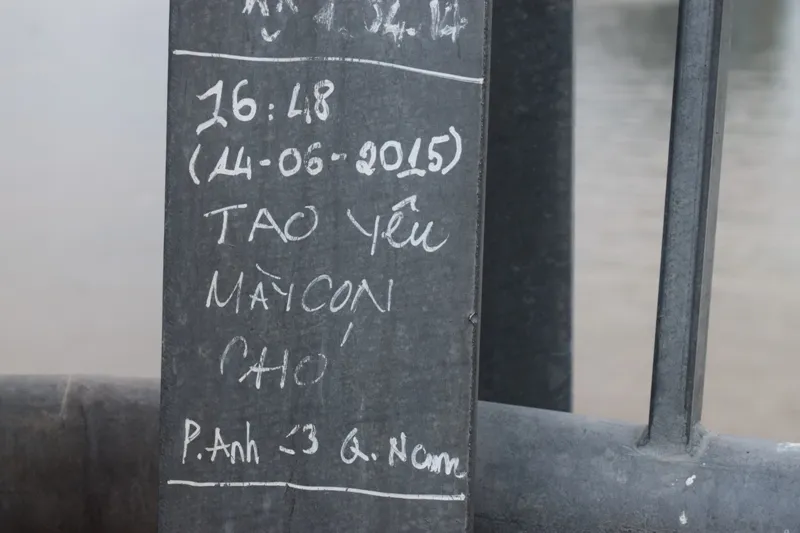 16:48
(14-06-2015)
TAO Yêu
MÀY CON
CHÓ
P.Anh <3 Q.Nam